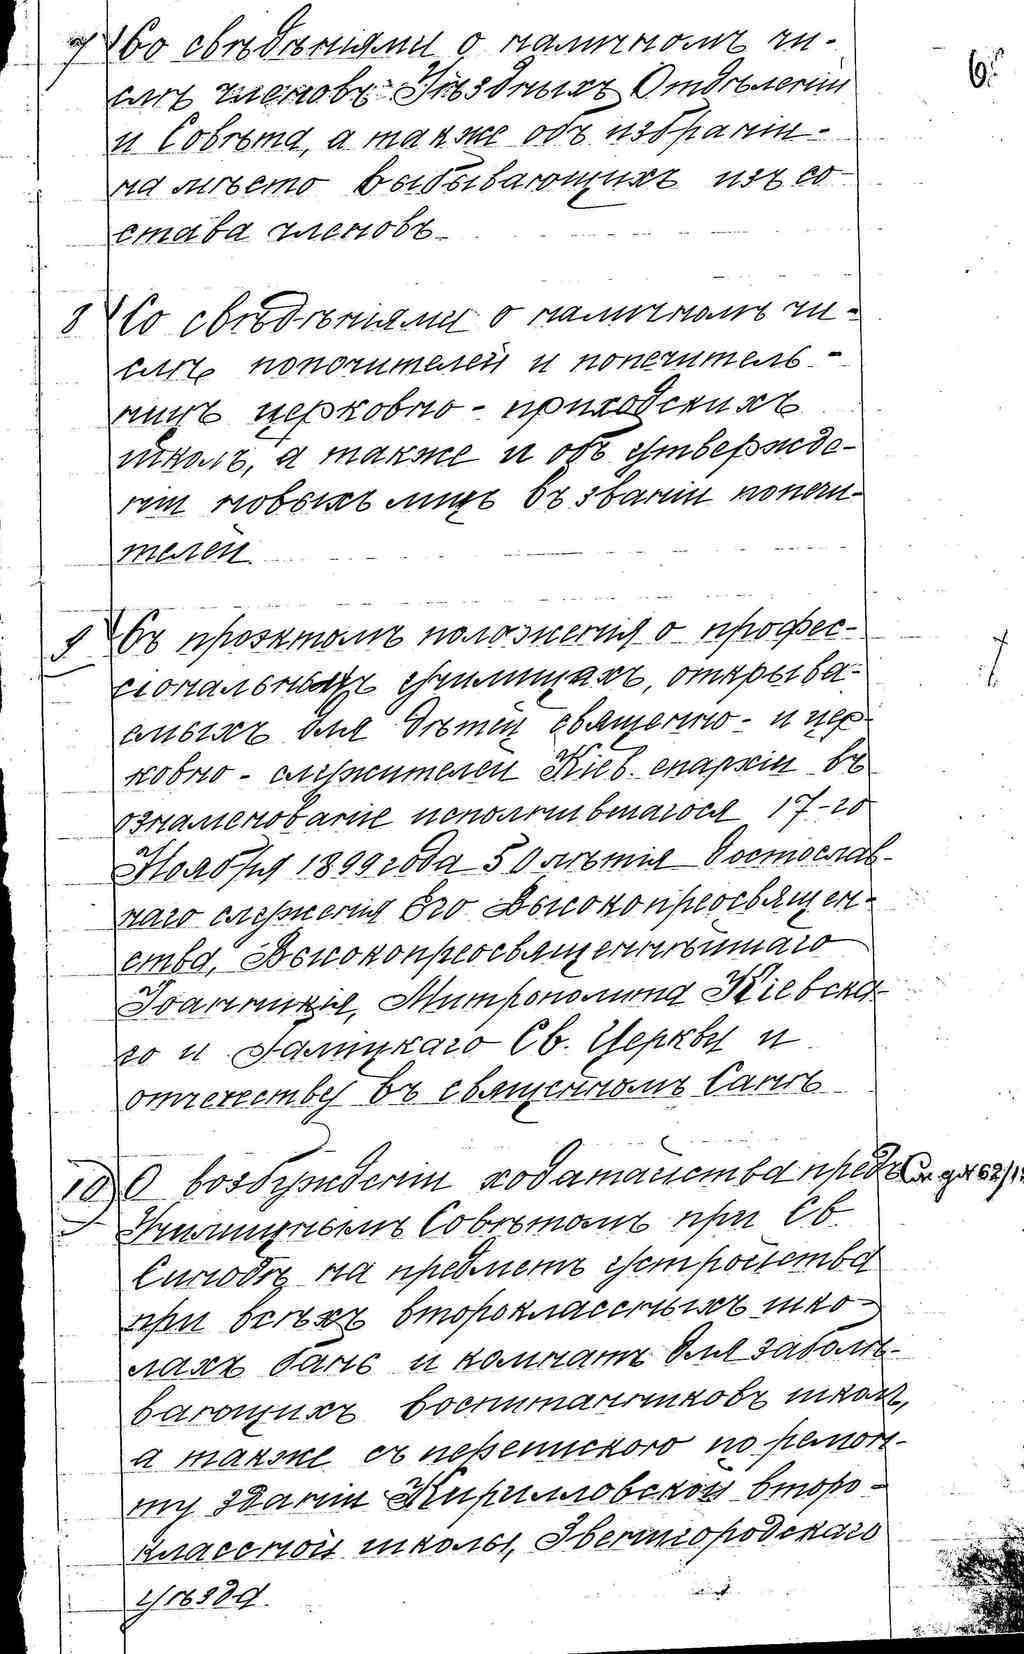 7 Со свѣдѣніями о наличномъ чи-
слѣ членовъ Уѣздныхъ Отдѣленій
и Совѣта, а также объ избраніи
на мѣсто выбывающихъ изъ со-
става членовъ.
8 Со свѣдѣніями о наличномъ чи-
слѣ попечителей и попечитель-
ницъ церковно-приходскихъ
школъ, а также и объ утвержде-
ніи новыхъ лицъ въ званіи попечи-
телей.
9 Съ проэктомъ положенія о профес-
сіональныхъ училищахъ, открыва-
емыхъ для дѣтей священно- и цер-
ковно-служителей Кіев. епархіи въ
ознаменованіе исполнившагося 17-го
Ноября 1899 года 50 лѣтія достослав-
наго служенія Его Высокопреосвящен-
ства, Высокопреосвященнѣйшаго
Іоанникія, Митрополита Кіевска-
го и Галицкаго Св. Церкви и
отечеству въ священномъ Санѣ
10 О возбужденіи ходатайства предъ
См. д. № 62/1
Училищнымъ Совѣтомъ при Св.
Синодѣ на предметъ устройства
при всѣхъ второклассныхъ шко-
лахъ бань и комнатъ для заболѣ-
вающихъ воспитанниковъ школъ,
а также съ перепискою по ремон-
ту зданій Кирилловской второ-
классной школы, Звенигородскаго
уѣзда.